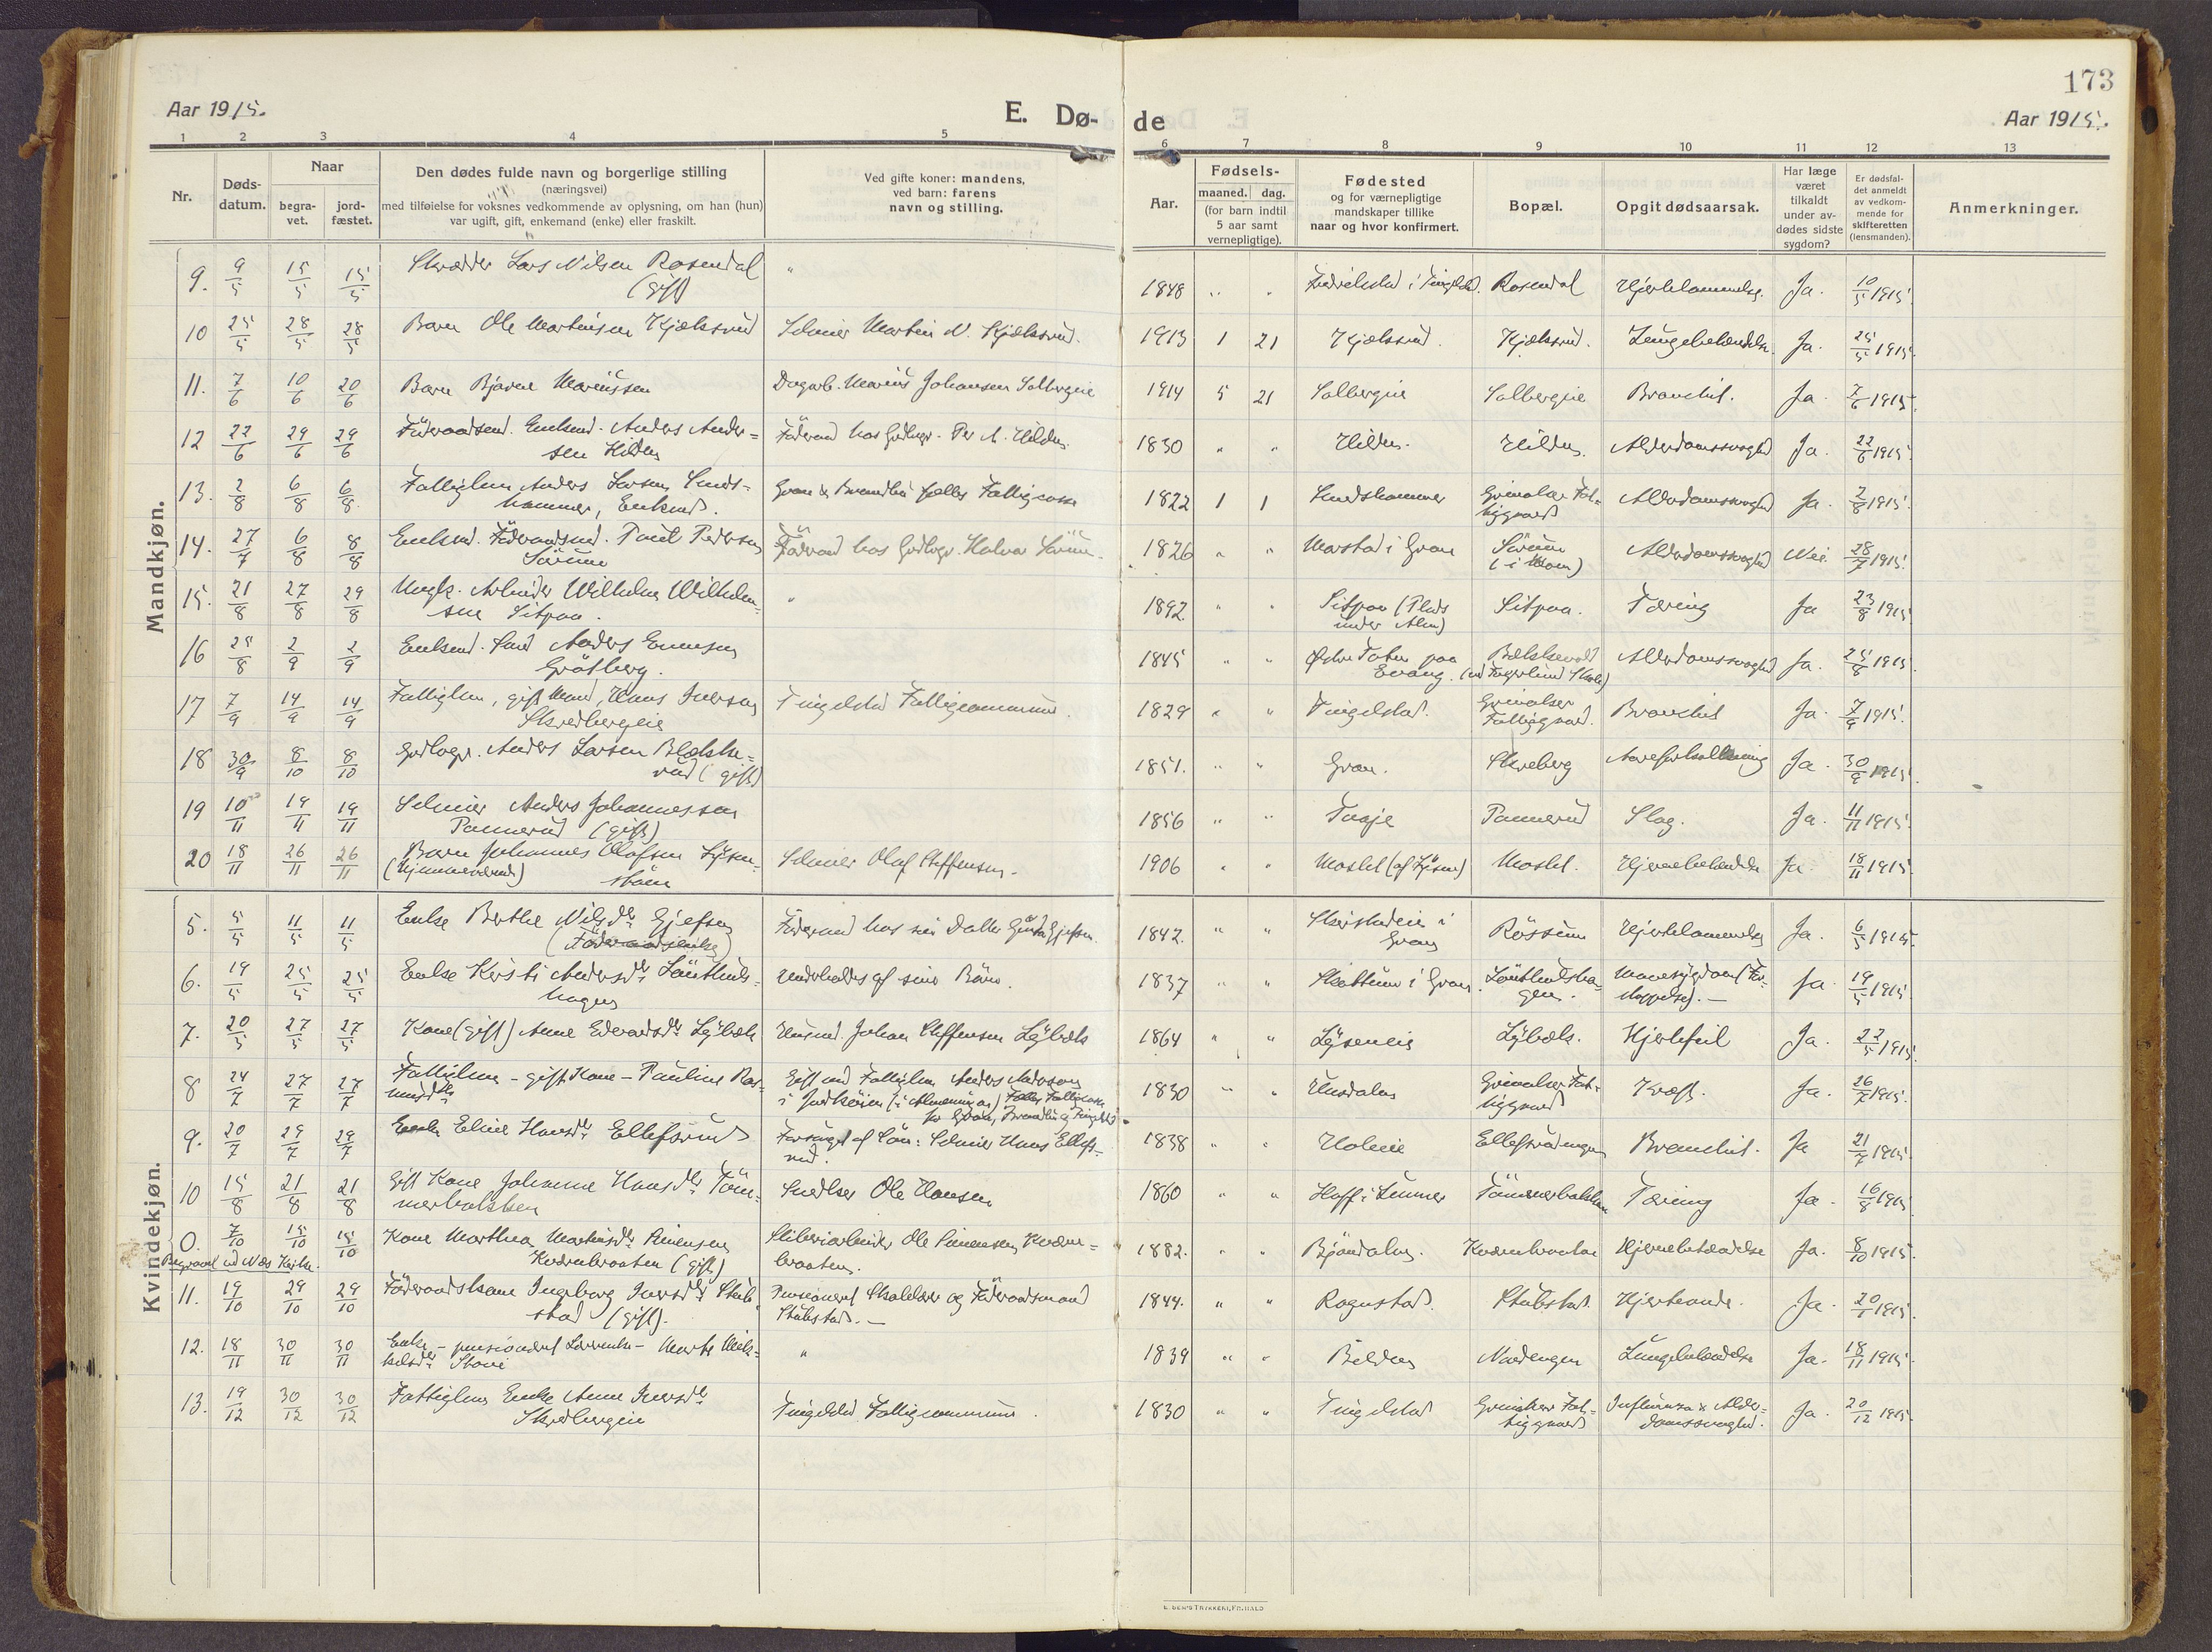 173
Aar 1915.
E. Dø-
de
Aar 1915.
1 2 3 4 5 6 7 8 9 10 11 12 13
Nr.
Døds-
datum.
Naar
begra-
vet.
jord-
fæstet.
Den dødes fulde navn og borgerlige stilling
(næringsvei)
med tilføielse for voksnes vedkommende av oplysning, om han (hun)
var ugift, gift, enkemand (enke) eller fraskilt.
Ved gifte koner: mandens,
ved barn: farens
navn og stilling.
Aar.
Fødsels-
maaned. dag.
(for barn indtil
5 aar samt
vernepligtige).
Fødested
og for værnepligtige
mandskaper tillike
naar og hvor konfirmert.
Bopæl.
Opgit dødsaarsak.
Har læge
været
tilkaldt
under av-
dødes sidste
sygdom?
Er dødsfal-
det anmeldt
av vedkom-
mende for
skifteretten
(lensmanden).
Anmerkninger.
Mandkjøn.
9. 9/5 15/5 15/5 Skrædder Lars Nilsen Rosendal " 1848 " " Rosendal Hjertelammelse. Ja. 10/5 1915.
(gift)
10 25/5 28/5 28/5 Barn Ole Martinsen Kjælsrud Selveier Martin N. Kjælsrud. 1913 1 21 Kjælsrud. Kjælsrud. Lungebetændelse. Ja. 25/5 1915.
11. 7/6 10/6 20/6 Barn Bjarne Mariussen Dagarb. Marius Johansen Solbergeie 1914 5 21 Solbergeie Solbergeie Bronchit. Ja. 7/6 1915.
12 22/6 29/6 29/6 Föderaadsmd. Enkemd. Anders Ander=
sen Hilden Föderaad hos Gårdbrgr. Per A. Hilden 1830 " " Hilden. Hilden. Alderdomssvaghed Ja. 22/6 1915.
13. 2/8 6/8 6/8 Fattiglem Anders Larsen Sands-
hammer, Enkemd. Gran & Brandbu fælles Fattigcasse 1822 1 1 Sandshammer Grinaker Fat-
tiggaard Alderdomssvaghed Ja. 2/8 1915.
14. 27/7 6/8 8/8 Enkemd. Föderaadsmd. Paul Pedersen
Sörum Föderaad hos Gårdbrgr. Halvor Sörum. 1826 " " Morstad i Gran Sörum
(i Moen) Alderdomssvaghed Nei. 28/7 1915.
15. 21/8 27/8 29/8 Ungk. Arbeider Wilhelm Wilhelm=
sen Sitpaa. " 1892. " " Sitpaa (Plads
under Alm) Sitpaa. Tæring Ja 23/8 1915
16 25/8 2/9 2/9 Enkemd. Smed Anders Evensen
Grötberg. 1845 " " Østre Toten paa
Evang. Alderdomssvaghed Ja. 25/8 1915
17 7/9 14/9 14/9 Fattiglem, gift Mand, Hans Iversen
Skredbergeie Tingelstad Fattigcommune. 1829 " " Tingelstad. Grinaker
Fattiggaard. Bronchit Ja. 7/9 1915.
18 30/9 8/10 8/10 Gårdbrgr. Anders Larsen Blekke=
rud (gift) 1851. " " Gran. Skreberg Aareforkalkning Ja. 30/9 1915
19 10/11 19/11 19/11 Selveier Anders Johannessen
Pannerud (gift) 1856 " " Taaje Pannerud Slag. Ja. 11/11 1915.
20 18/11 26/11 26/11 Barn Johannes Olafsen Lysen-
(hjemmeværende) stöen Selveier Olaf Steffensen. 1906 " " Moslet (af Lysen) Moslet. Hjernebetændelse Ja. 18/11 1915.
Kvindekjøn.
5. 5/5 11/5 11/5 Enke Berthe Nilsdtr Gjefsen
(Föderaadsenke) Föderaad hos sin Datter Gjefsen. 1842. " " i
Gran Rössum Hjertelammelse Ja. 6/5 1915.
6. 19/5 25/5 25/5 Enke Kersti Andersdtr Löutkuts-
hagen Underholdes af sine Börn. 1837 " " Skattum i Gran. Löutkutsha-
gen. Mavesygdom (For-
stoppelse).— Ja. 19/5 1915.
7. 20/5 27/5 27/5 Kone (gift) Anne Edvardsdtr Lybæk Husmd. Johan Steffensen Lybæk 1864 " " Lyseneie Lybæk. Hjertefeil Ja. 22/5 1915.
8 24/7 27/7 27/7 Fattiglem - gift Kone - Pauline Ras-
musdtr Gift med Fattiglem Anders Andersen
i (i Almenningen) Fælles Fattigcasse
for Gran, Brandbu & Tingelstad. 1830 " " Grinaker Fat-
tiggaard Kræft. Ja. 26/7 1915.
9. 20/7 29/7 29/7 Enke Eline Hansdtr Ellefsrud Forsörget af Sön: Selveier Hans Ellefs-
rud. 1838 " " Holmeie Ellefsrudengen Bronchit. Ja 21/7 1915.
10 15/8 21/8 21/8 Gift Kone Johanne Hansdtr Töm-
merbakken Snedker Ole Hansen 1860 " " Hoff i Lunner Tömmerbakken Tæring Ja. 16/8 1915.
0. 7/10 15/10 15/10 Kone Marthea Martinsdtr Simensen
Begravet ved Næs Kirke. Kværnbraaten (gift) Sliberiarbeider Ole Simensen, Kværn=
braaten. 1882. " " Bjöndalen. Kværnbraaten Hjernebetændelse Ja. 8/10 1915.
11. 19/10 29/10 29/10 Föderaadskone Ingeborg Iversdtr Stub-
stad (gift). Pensioneret Skolelærer og Föderaadsmand
Stubstad.— 1844. " " Rognstad. Stubstad. Hjerteonde. Ja. 1915.
12. 18/11 30/11 30/11 Enke - pensioneret Lærerenke - Marte Mik-
kelsdtr " 1839 " " Bilden Nordengen Lungebetændelse Ja. 18/11 1915.
13. 19/12 30/12 30/12 Fattiglem Enke Anne Iversdtr
Skredbergeie Tingelstad Fattigcommune. 1830 " " Tingelstad Grinaker Fat-
tiggaard Influenza & Alder-
domssvaghed. Ja. 20/12 1915.